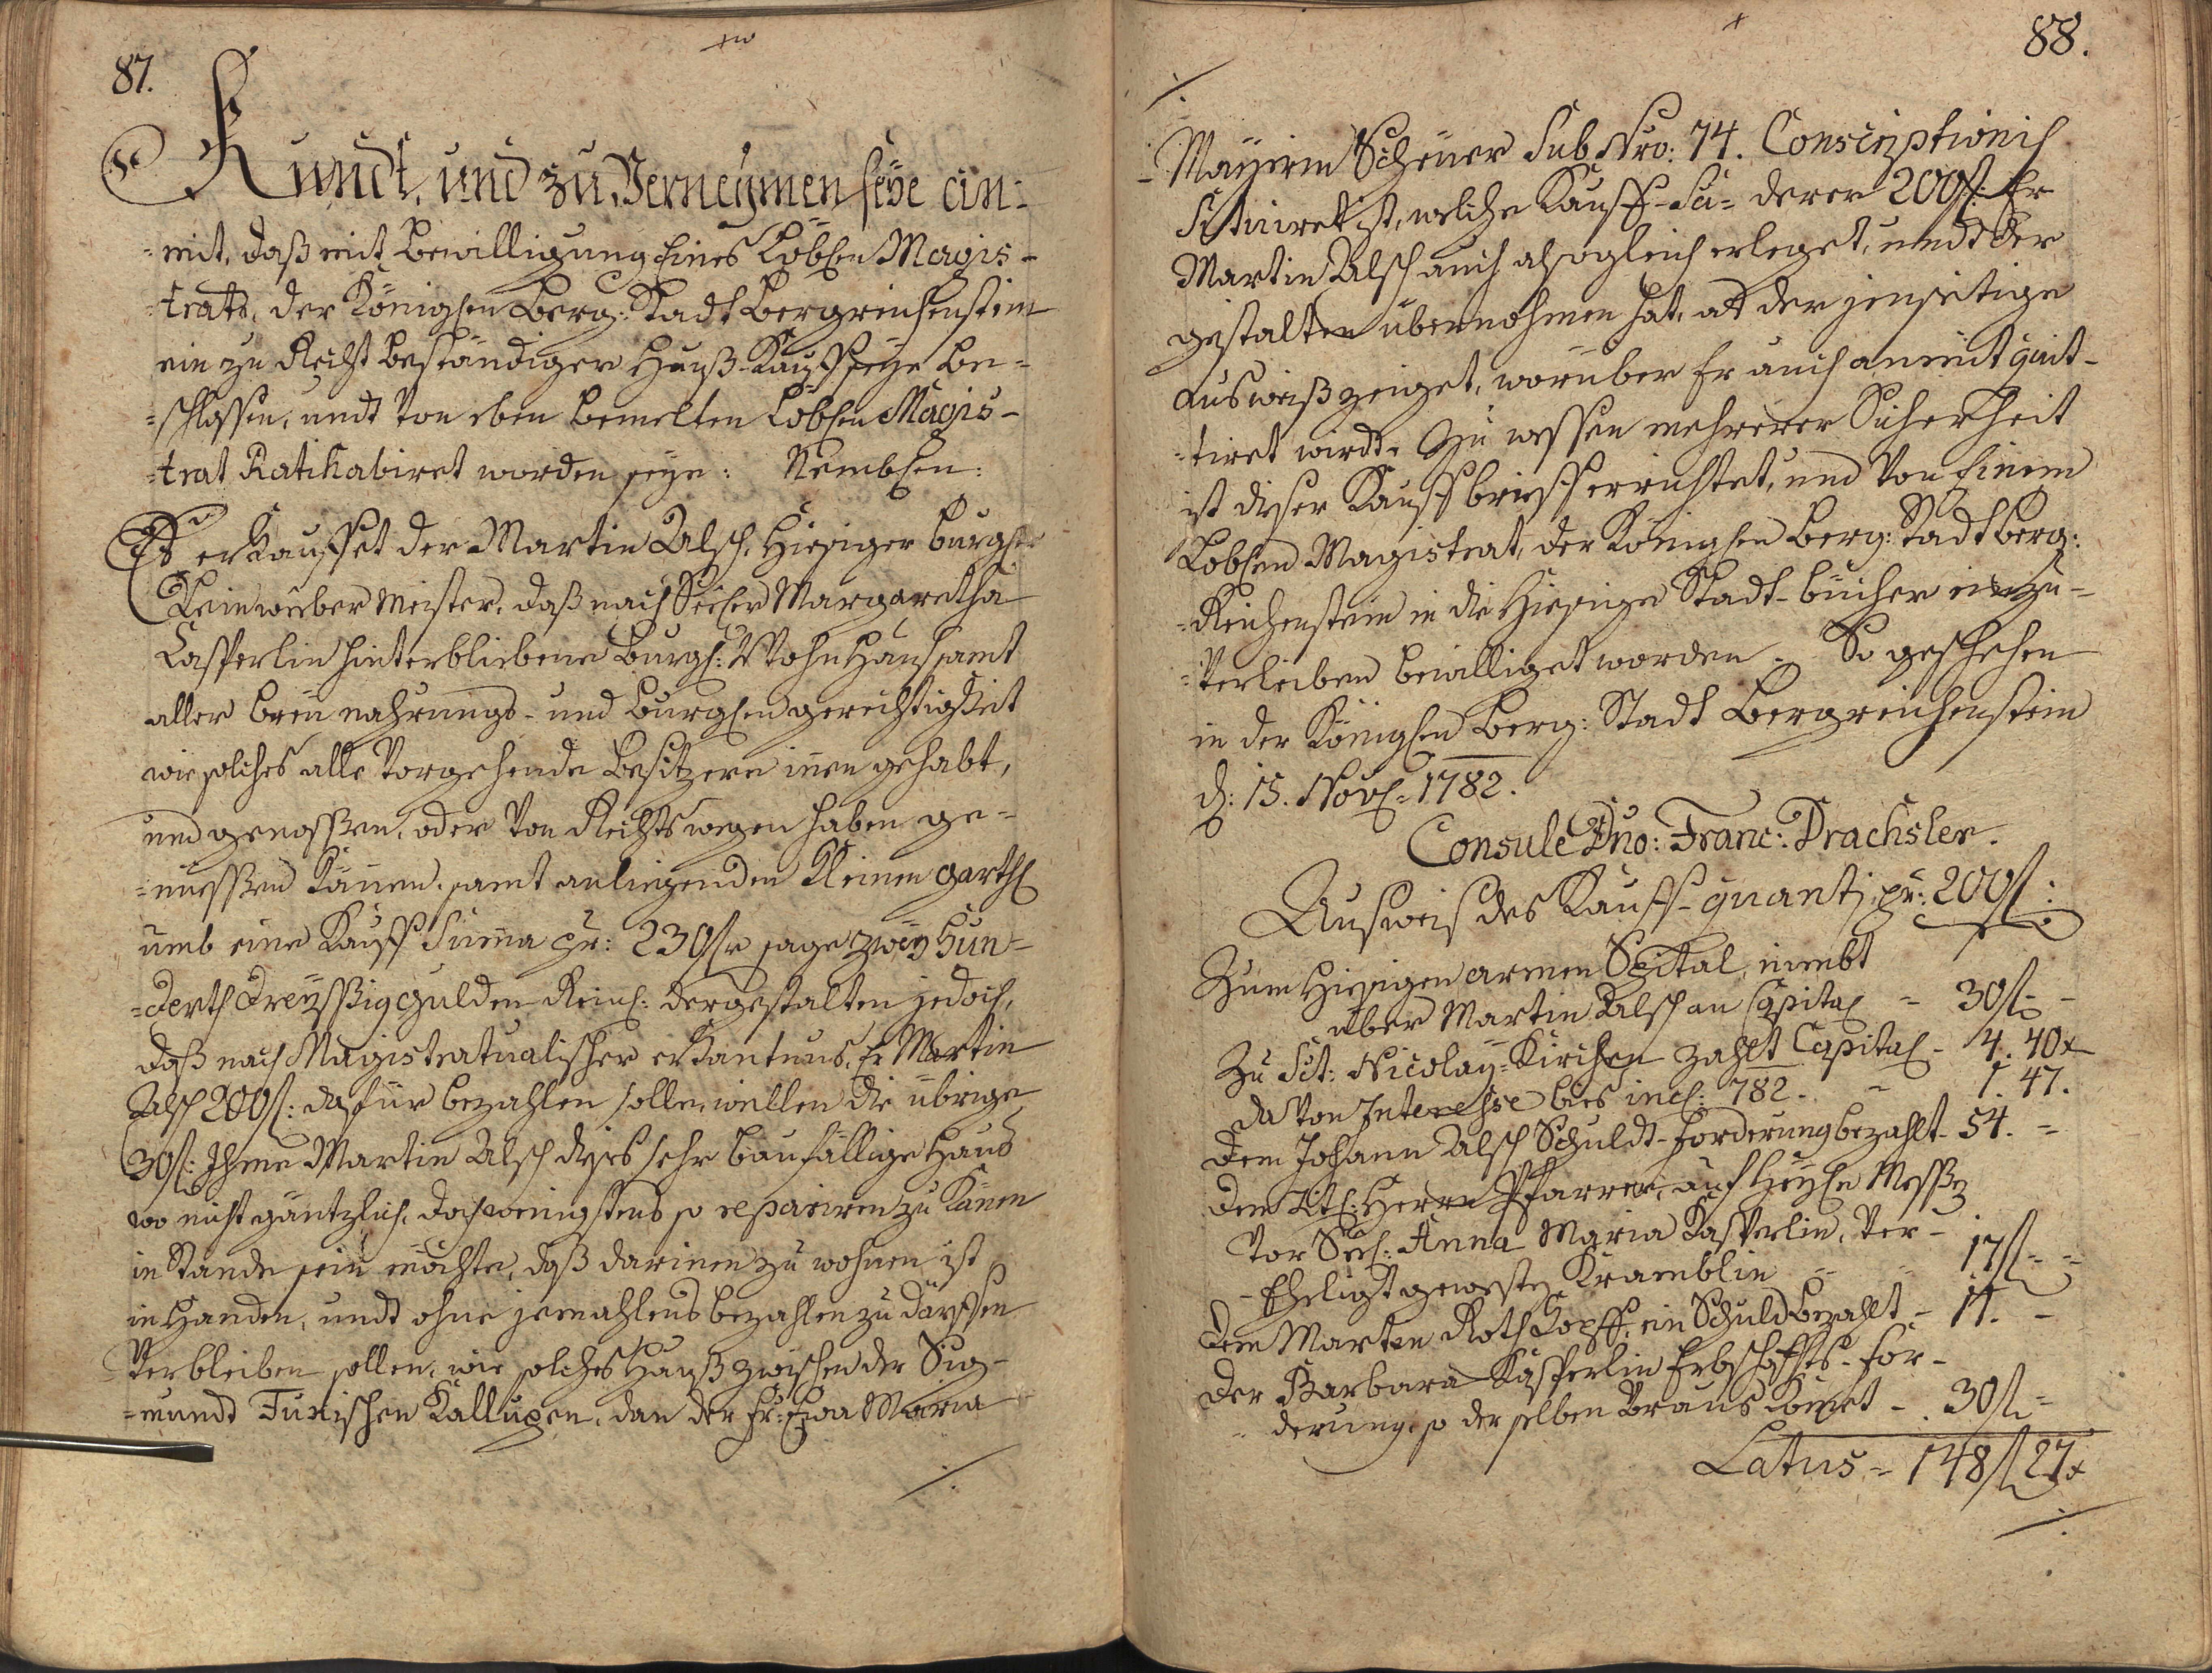 87.
Kundt, und zu Vernehmen seye ein-
=mit, daß mit Bewilligung Eines Löblen Magis-
=trats, der Königlen Berg: Stadt Bergreichenstein
ein zu Recht beständiger Hauß-Kauff seye be-
=schlossen, undt von eben bemelten Löblen Magis-
=trat Ratihabiret worden seye: Nemblen:
Es erkauffet der Martin Alsch, hiesiger burgle
Leinweeber Meister, daß nach Seeler Margaretha
Casperlin hinterbliebene burgl: Wohn Hauß samt
aller breu nahrungs- und burglen gerechtigkeit
wie solches alle vorgehende Besitzere inen gehabt,
und genossen, oder von Rechtswegen haben ge-
=nuessen können, samt anliegenden Kleinen garthl
umb eine Kauff Suma pr: 230 fl sage zweÿ hun-
=derth dreyßig Gulden Reinl: dergestalten jedoch,
daß nach Magistratualischer erkantnus, Er Martin
Alsch 200 fl: dafür bezahlen solle, weillen die übrige
30 fl: Ihme Martin Alsch dises sehr baufällige Haus
wo nicht gäntzlich, doch wenigstens so repariren zu können
in Stande sein möchte, daß darinen zu wohnen ist
in Handen, undt ohne jemahlens bezahlen zu därffen
verbleiben sollen, wie solches Hauß zwischen der Sig-
=mundt Turischen Kallupen, dan der Fr: Eva Maria
88.
Maÿrin Scheuer Sub Nro: 74. Conscriptionis
Situiret ist, welche Kauff-Su- derer 200 fl: Er
Martin Alsch auch alsogleich erleget, undt der
gestalten übernohmen hat, als der jenseitige
Ausweiß zeiget, worüber Er auch anmit quit-
=tiret wirdt. Zu wessen mehrerer Sicherheit
ist diser Kauffbrieff errichtet, und von Einem
Löblen Magistrat, der Königlen Berg: Stadt Berg:
=Reichenstein in die hiesige Stadt-bücher einzu-
=verleiben bewilliget worden. So geschehen
in der Königlen Berg: Stadt Bergreichenstein
d: 15. Novl: 1782.
Consule Dno: Franc: Drachsler.
Ausweis des Kauff-quanti pr: 200 fl:
Zum hiesigen armen Spital, nimbt
über Martin Alsch an Capital - 30 fl -
Zu Sct: Nicolaÿ-Kirchen zahlt Capital - 4. 40 x
davon Interesse bies incl: 782. - 1. 47.
dem Johann Alsch Schuldt-forderung bezahlt - 54. -
dem Titl: Herrn Pfarrer, auf Heÿle Messen
vor Seel: Anna Maria Kasperlin, ver-
-Eheligt geweste Kramblin - 17 fl -
dem Marten Rothkopff, ein Schuld bezahlt - 11. -
der Barbara Kasperlin Erbschaffts-for-
derung, so der selben Vraus komet - 30 fl -
Latus - 148 fl 27 x